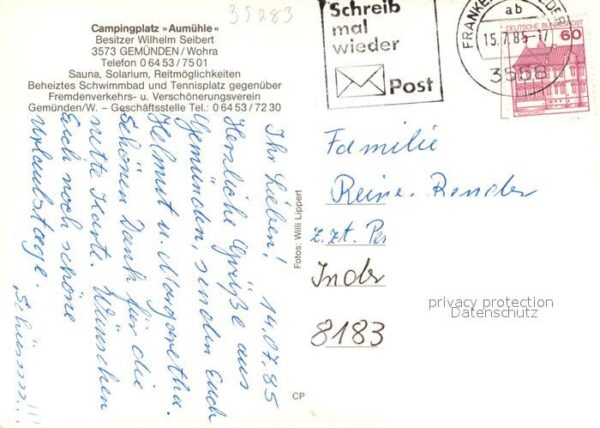 35283
Campingplatz »Aumühle«
Besitzer Wilhelm Seibert
3573 GEMÜNDEN / Wohra
Telefon 0 64 53 / 75 01
Sauna, Solarium, Reitmöglichkeiten
Beheiztes Schwimmbad und Tennisplatz gegenüber
Fremdenverkehrs- u. Verschönerungsverein
Gemünden/W. – Geschäftsstelle Tel.: 0 64 53 / 72 30
Ihr Lieben! 14.07.85
Herzliche Grüße aus
Gemünden, senden Euch
Helmut u. Margaretha.
Schönen Dank für die
nette Karte. Wünschen
Euch noch schöne
Urlaubstage.
Tschüssss!!!
Fotos: Willi Lippert
CP
Schreib
mal
wieder
Post
FRANKENBERG EDER
ab
15.7.85-17
3558
DEUTSCHE BUNDESPOST
60
Familie
z.zt.
8183
privacy protection
Datenschutz